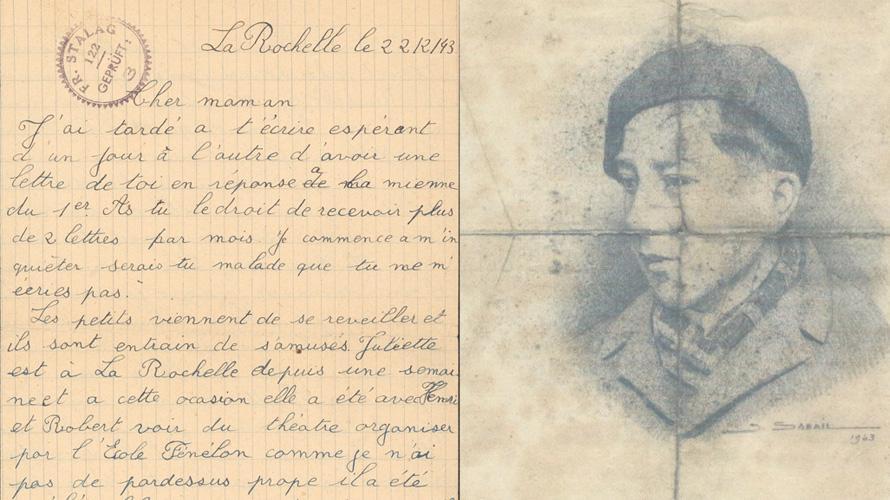 FR. STALAG
122
GEPRÜFT:
3
La Rochelle le 22/2/43
Cher maman
J'ai tardé a t'écrire espérant
d'un jour à l'autre d'avoir une
lettre de toi en réponse a la mienne
du 1er. As tu le droit de recevoir plus
de 2 lettres par mois. Je commence a m'in
quiéter serais tu malade que tu ne m'
écries pas.
Les petits viennent de se reveiller et
ils sont entrain de s'amusés. Juliette
est à La Rochelle depuis une semai
ne et a cette ocasion elle a été avec Henri
et Robert voir du théatre organiser
par l'École Fénélon comme je n'ai
pas de pardessus prope il a été
S. Sabail
1943